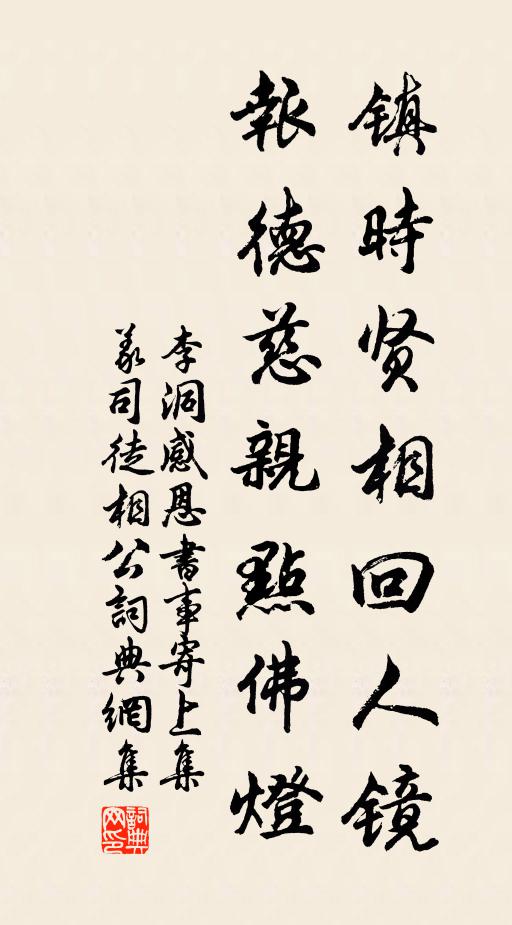 鎮時贤相回人镜
報德慈親點佛燈
李洞感恩書事寄上集
義司徒相公詞典網集
詞典網印